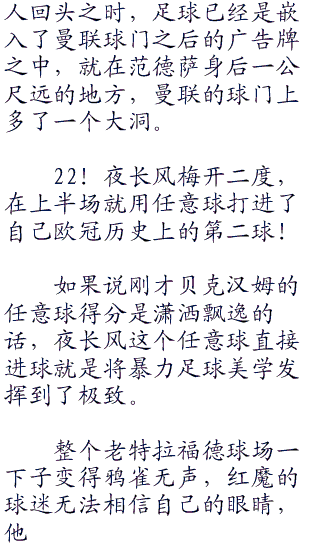 人回头之时，足球已经是嵌
入了曼联球门之后的广告牌
之中，就在范德萨身后一公
尺远的地方，曼联的球门上
多了一个大洞。
22！夜长风梅开二度，
在上半场就用任意球打进了
自己欧冠历史上的第二球！
如果说刚才贝克汉姆的
任意球得分是潇洒飘逸的
话，夜长风这个任意球直接
进球就是将暴力足球美学发
挥到了极致。
整个老特拉福德球场一
下子变得鸦雀无声，红魔的
球迷无法相信自己的眼睛，
他